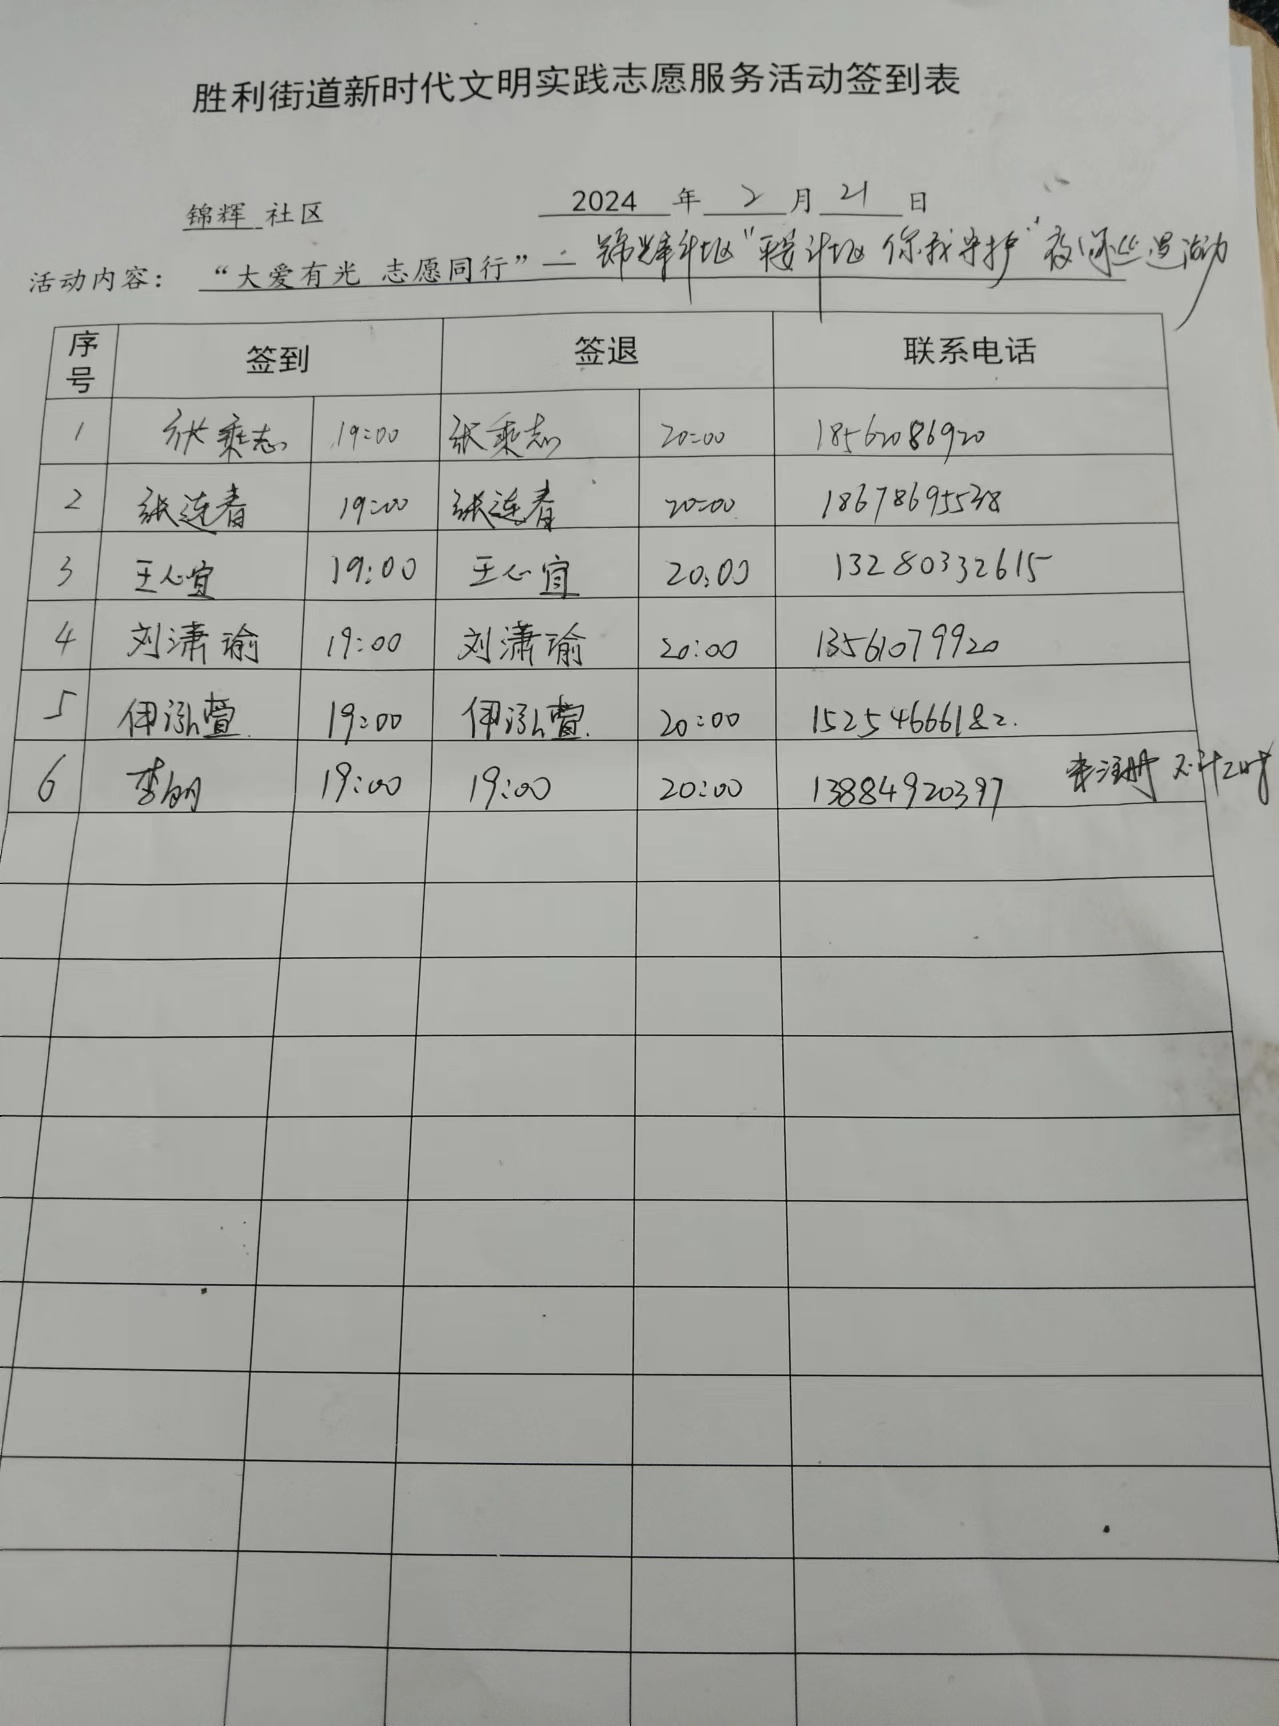 胜利街道新时代文明实践志愿服务活动签到表
锦辉 社区 2024 年 2 月 21 日
活动内容： “大爱有光 志愿同行”— 锦辉社区“平安社区 你我守护”夜间巡逻活动
序号 签到 签退 联系电话
1 张秉志 19:00 张秉志 20:00 18562086920
2 张连春 19:00 张连春 20:00 18678695538
3 王心宜 19:00 王心宜 20:00 13280332615
4 刘潇瑜 19:00 刘潇瑜 20:00 13561079920
5 伊泓萱 19:00 伊泓萱. 20:00 15254666182.
6 李明 19:00 19:00 20:00 13884920397 未注册 不计工时